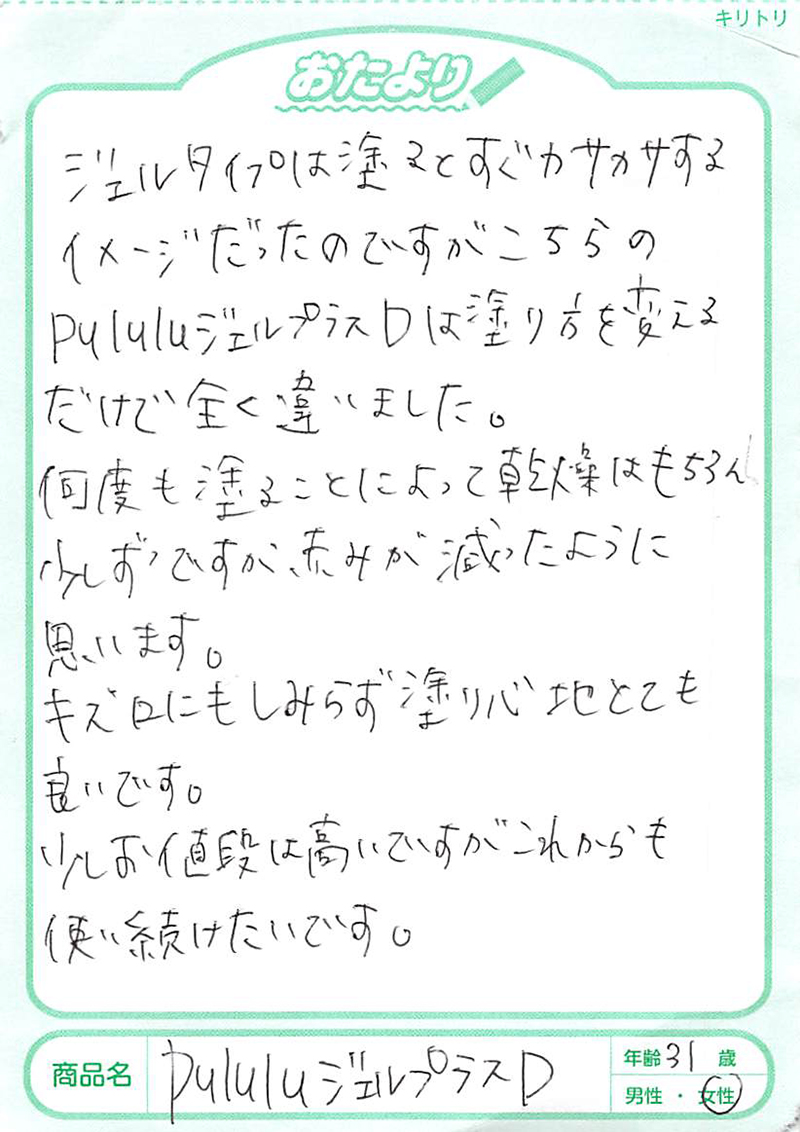 キリトリ
おたより
ジェルタイプは塗るとすぐカサカサする
イメージだったのですがこちらの
pululuジェルプラスDは塗り方を変える
だけで全く違いました。
何度も塗ることによって乾燥はもちろん
少しずつですが、赤みが減ったように
思います。
キズ口にもしみらず塗り心地とても
良いです。
少しお値段は高いですがこれからも
使い続けたいです。
商品名 pululuジェルプラスD 年齢31歳
男性・女性